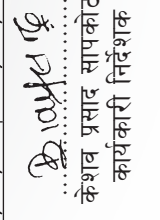 केशव प्रसाद सापकोटा
कार्यकारी निर्देशक